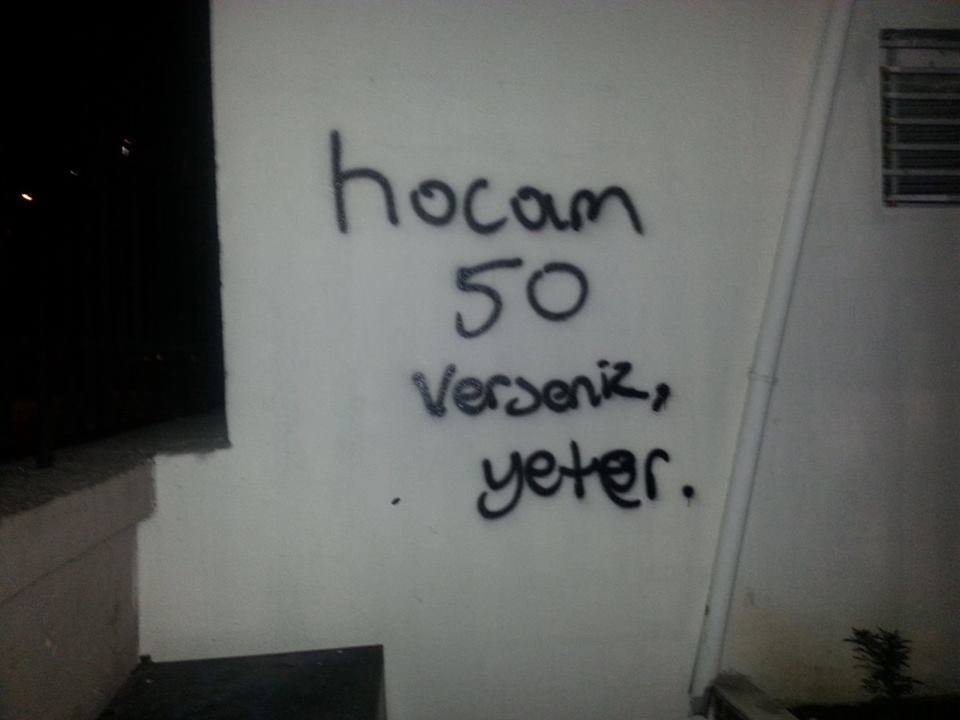 hocam
50
verseniz,
yeter.